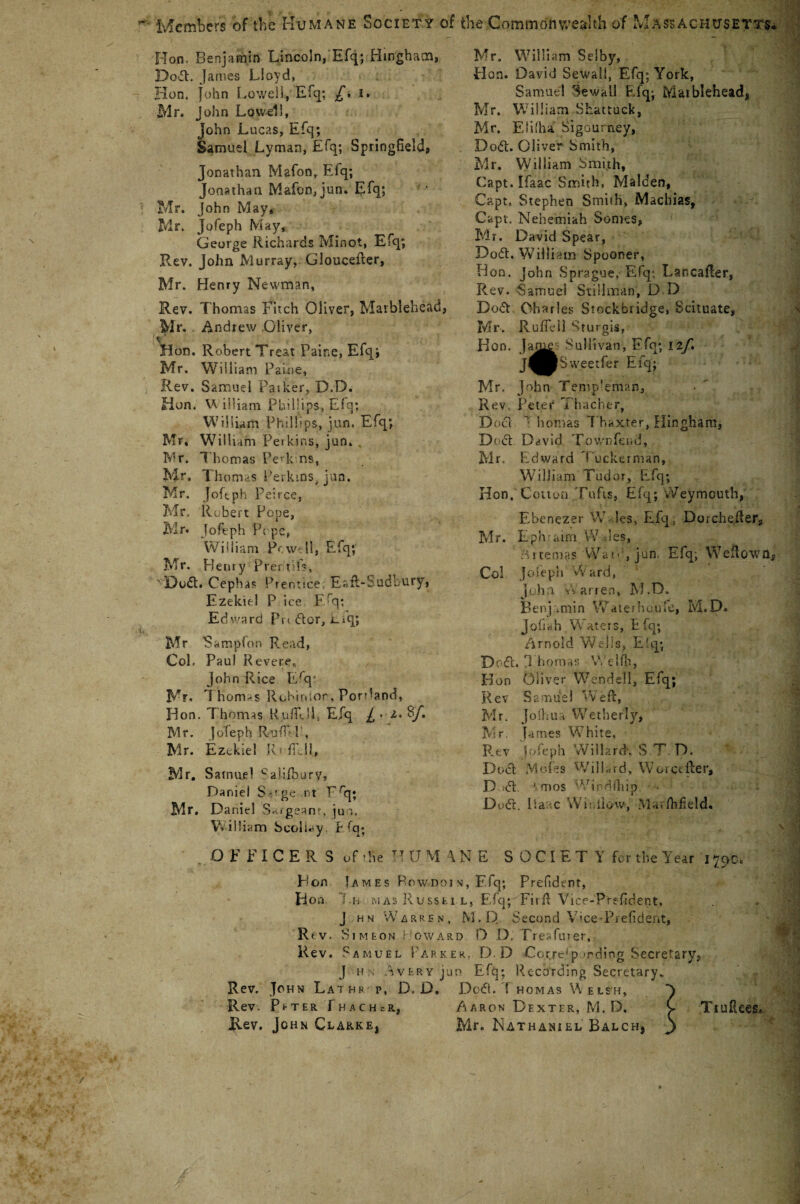 Members of the HUMANE SOCIETY of the Commonwealth of MASSACHUSETTS.
Hon. Benjamin Lincoln, Eſq; Hingham,
Doct. James Lloyd,
Hon. John Lowell, Eſq; £. 1.
Mr. John Lowell,
John Lucas, Eſq;
Samuel Lyman, Eſq; Springfield,
Jonathan Maſon, Eſq;
Jonathan Maſon, jun. Eſq;
Mr. John May,
Mr. Joſeph May,
George Richards Minot, Eſq;
Rev. John Murray, Glouceſter,
Mr. Henry Newman,
Rev. Thomas Fitch Oliver, Marblehead,
Mr. Andrew Oliver,
Hon. Robert Treat Paine, Eſq;
Mr. William Paine,
Rev. Samuel Parker, D.D.
Hon. William Phillips, Eſq;
William Phillips, jun. Eſq;
Mr. William Perkins, jun.
Mr. Thomas Perkins,
Mr. Thomas Perkins, jun.
Mr. Joſeph Peirce,
Mr. Robert Pope,
Mr. Joſeph Pope,
William Powell, Eſq;
Mr. Henry Prentiſs,
Doct. Cephas Prentice, Eaſt-Sudbury,
Ezekiel Price, Eſq;
Edward Proctor, Eſq;
Mr Sampſon Read,
Col. Paul Revere,
John Rice Eſq;
Mr. Thomas Robinſon, Portland,
Hon. Thomas Ruſſell, Eſq £. 2. 8ſ.
Mr. Joſeph Ruſſell,
Mr. Ezekiel Ruſſell,
Mr. Samuel Saliſbury,
Daniel Sargeant Eſq;
Mr. Daniel Sargeant, jun.
William Scollay, Eſq;
Mr. William Selby,
Hon. David Sewall, Eſq; York,
Samuel Sewall Eſq; Marblehead,
Mr. William Shattuck,
Mr. Eliſha Sigourney,
Doct. Oliver Smith,
Mr. William Smith,
Capt. Iſaac Smith, Malden,
Capt. Stephen Smith, Machias,
Capt. Nehemiah Somes,
Mr. David Spear,
Doct. William Spooner,
Hon. John Sprague, Eſq; Lancaſter,
Rev. Samuel Stillman, D D
Doct Charles Stockbridge, Scituate,
Mr. Ruſſell Sturgis,
Hon. James Sullivan, Eſq; 12ſ.
Sweetſer Eſq;
Mr. John Templeman,
Rev. Peter Thacher,
Doct Thomas Thaxter, Hingham,
Doct David Townſend,
Mr. Edward Tuckerman,
William Tudor, Eſq;
Hon. Cotton Tufts, Eſq; Weymouth,
Ebenezer Wales, Eſq; Dorcheſter,
Mr. Ephraim Wales,
Artemas Ward, jun. Eſq; Weſtown,
Col Joſeph Ward,
John Warren, M.D.
Benjamin Waterhouſe, M.D.
Joſiah Waters, Eſq;
Arnold Wells, Eſq;
Doct. Thomas Welſh,
Hon Oliver Wendell, Eſq;
Rev Samuel Weſt,
Mr. Joſhua Wetherly,
Mr. James White,
Rev Joſeph Willard, S.T.D.
Doct Moſes Willard, Worceſter,
Doct. Amos Windſhip
Doct. Iſaac Winſlow, Marſhfield.
OFFICERS of the HUMANE SOCIETY for the Year 1790.
Hon JAMES BOWDOIN, Eſq; Preſident,
Hon THOMAS RUSSELL, Eſq; Firſt Vice-Preſident,
JOHN WARREN, M.D. Second Vice-Preſident,
Rev. SIMEON HOWARD D D. Treaſurer,
Rev. SAMUEL PARKER, D. D Correſponding Secretary,
JOHN AVERY jun Eſq; Recording Secretary.
Rev. JOHN LATHROP, D. D. Doct. THOMAS WELSH,
Rev. PETER THACHER, AARON DEXTER, M. D. Truſtees.
Rev. JOHN CLARKE, Mr. NATHANIEL BALCH,